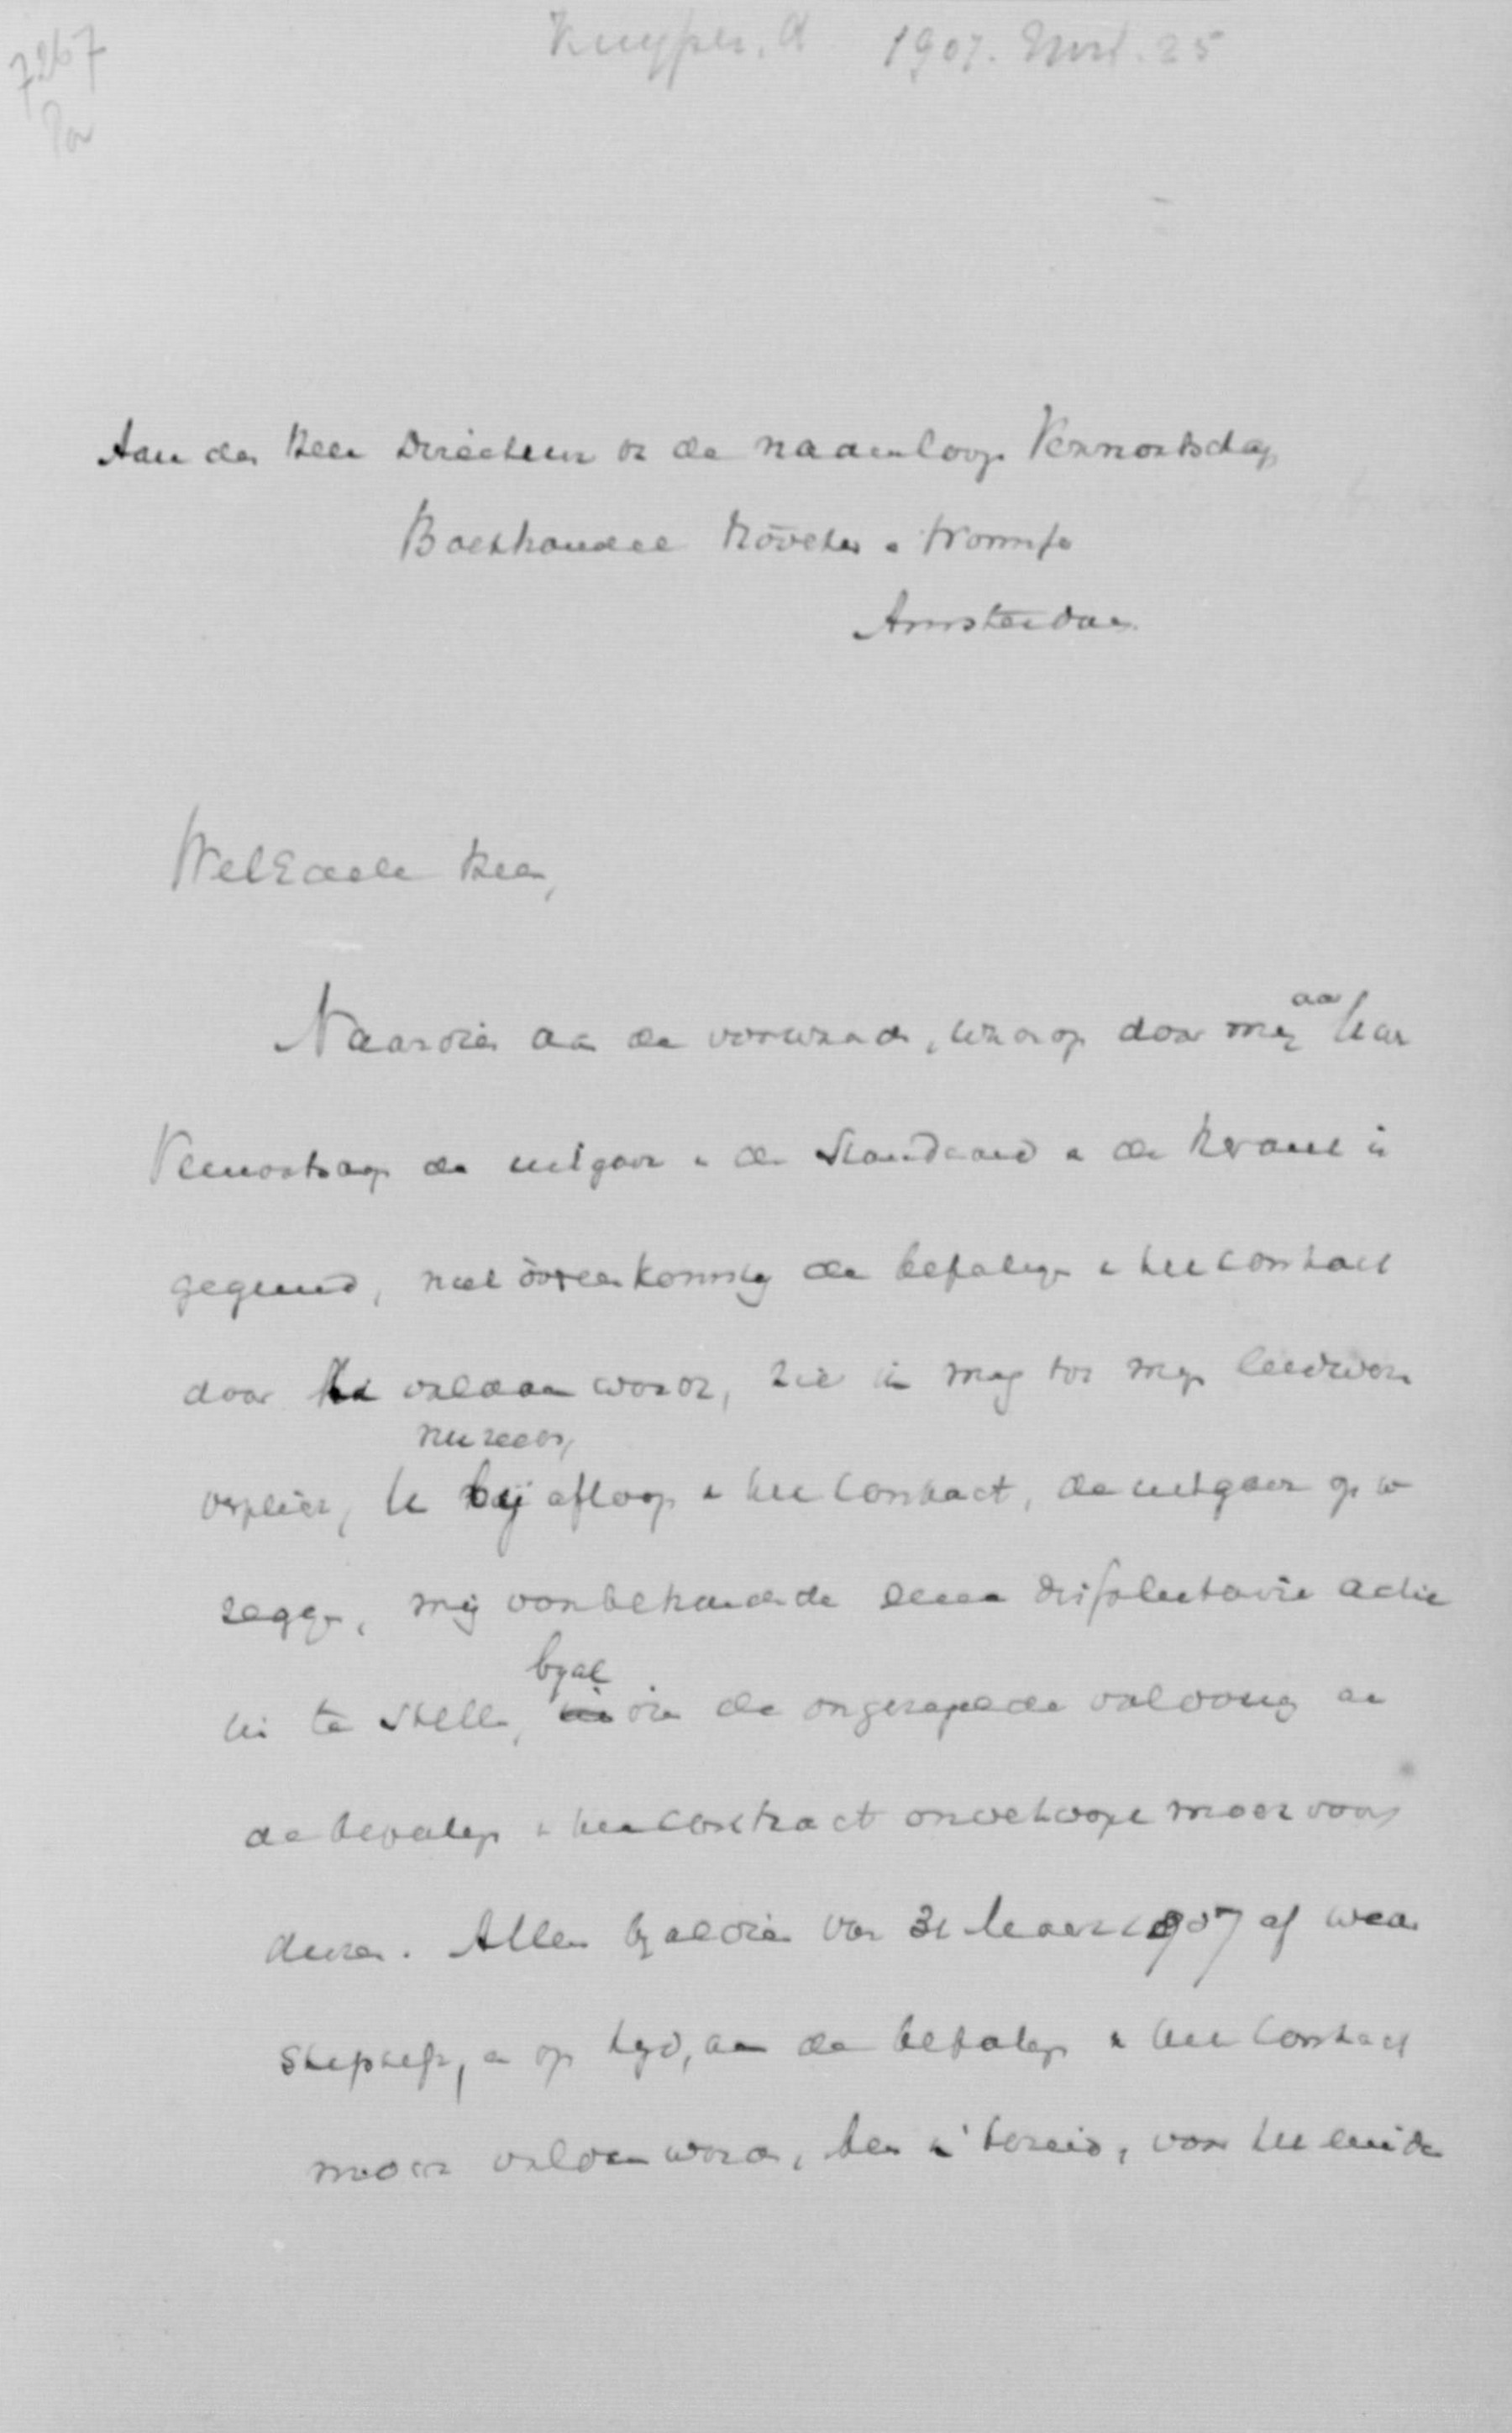 7267
Kuyper, A. 1907. Mrt. 25
Aan den Heer Directeur van de naamlooze Vennootschap
Boekhandel Höveker & Wormser
Amsterdam
WelEdele Heer,
Naardien aan de voorwaarden, waarop door mij aan Uwe
Vennootschap de uitgave van de Standaard en de Heraut is
gegund, niet overeenkomstig de bepalingen van het contract
door U voldaan wordt, zie ik mij tot mijn leedwezen
verplicht, U nu reeds, bij afloop van het Contract, de uitgave op te
zeggen, mij voorbehoudende eene actie
in te stellen, byaldien de voldoening aan
de bepalingen van het contract onverhoopt mocht voort
duren. Alleen byaldien van 31 Maart 1907 af weer
stiptelijk, en op tijd, aan de bepalingen van het Contract
mocht voldaan worden, ben ik bereid, voor het einde